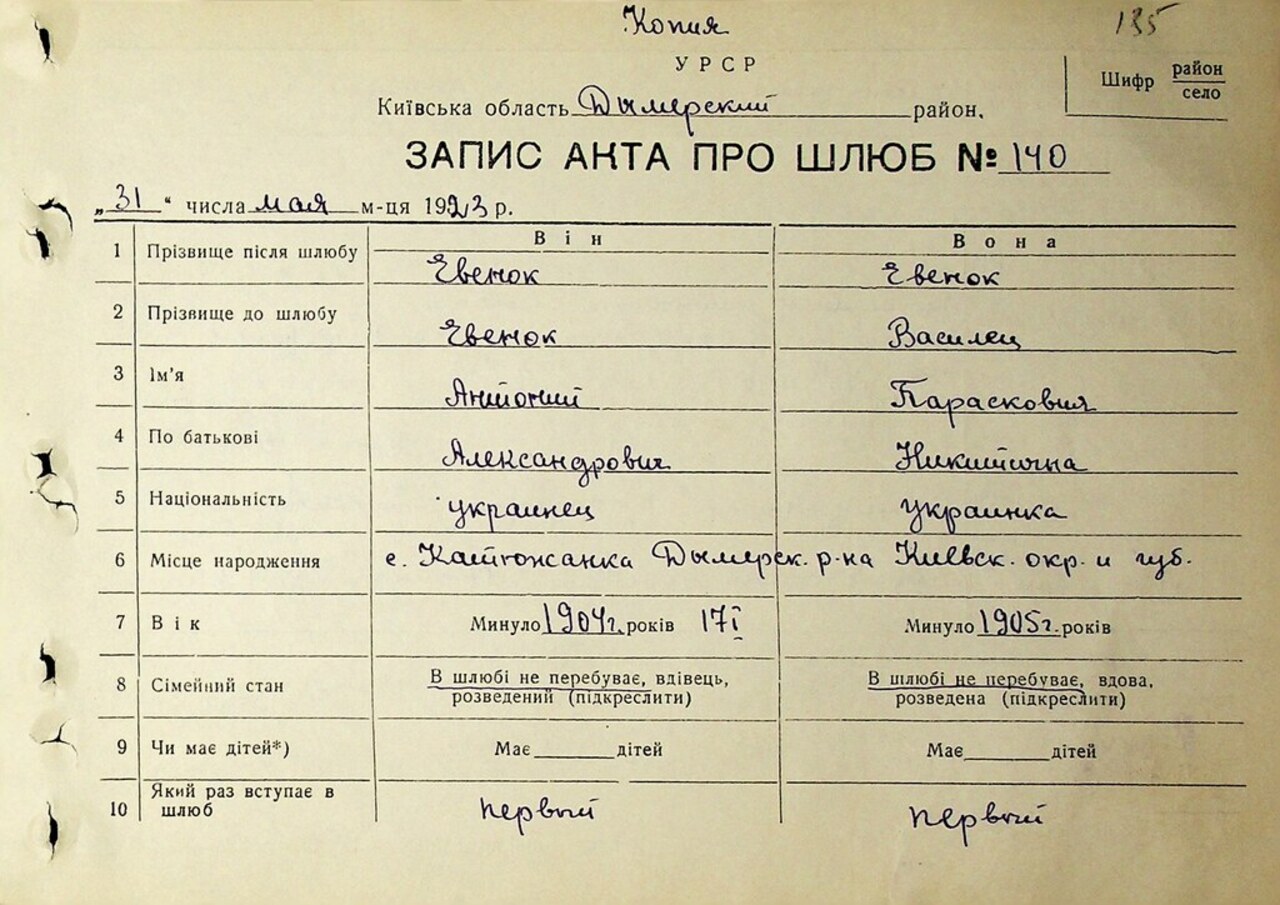 Копия
135
УРСР
Шифр район
село
Київська область Дымерский район.
ЗАПИС АКТА ПРО ШЛЮБ № 140
„31“ числа мая м-ця 1923 р.
Він Вона
1 Прізвище після шлюбу Евенок Евенок
2 Прізвище до шлюбу Евенок Василец
3 Ім’я Антоний Парасковия
4 По батькові Александрович Никитична
5 Національність украинец украинка
6 Місце народження с. Катюжанка Дымерск. р-на Киевск. окр. и губ.
7 Вік Минуло 1904г. років 17 I Минуло 1905г. років
8 Сімейний стан В шлюбі не перебуває, вдівець, В шлюбі не перебуває, вдова,
розведений (підкреслити) розведена (підкреслити)
9 Чи має дітей*) Має дітей Має дітей
10 Який раз вступає в
шлюб первый первый